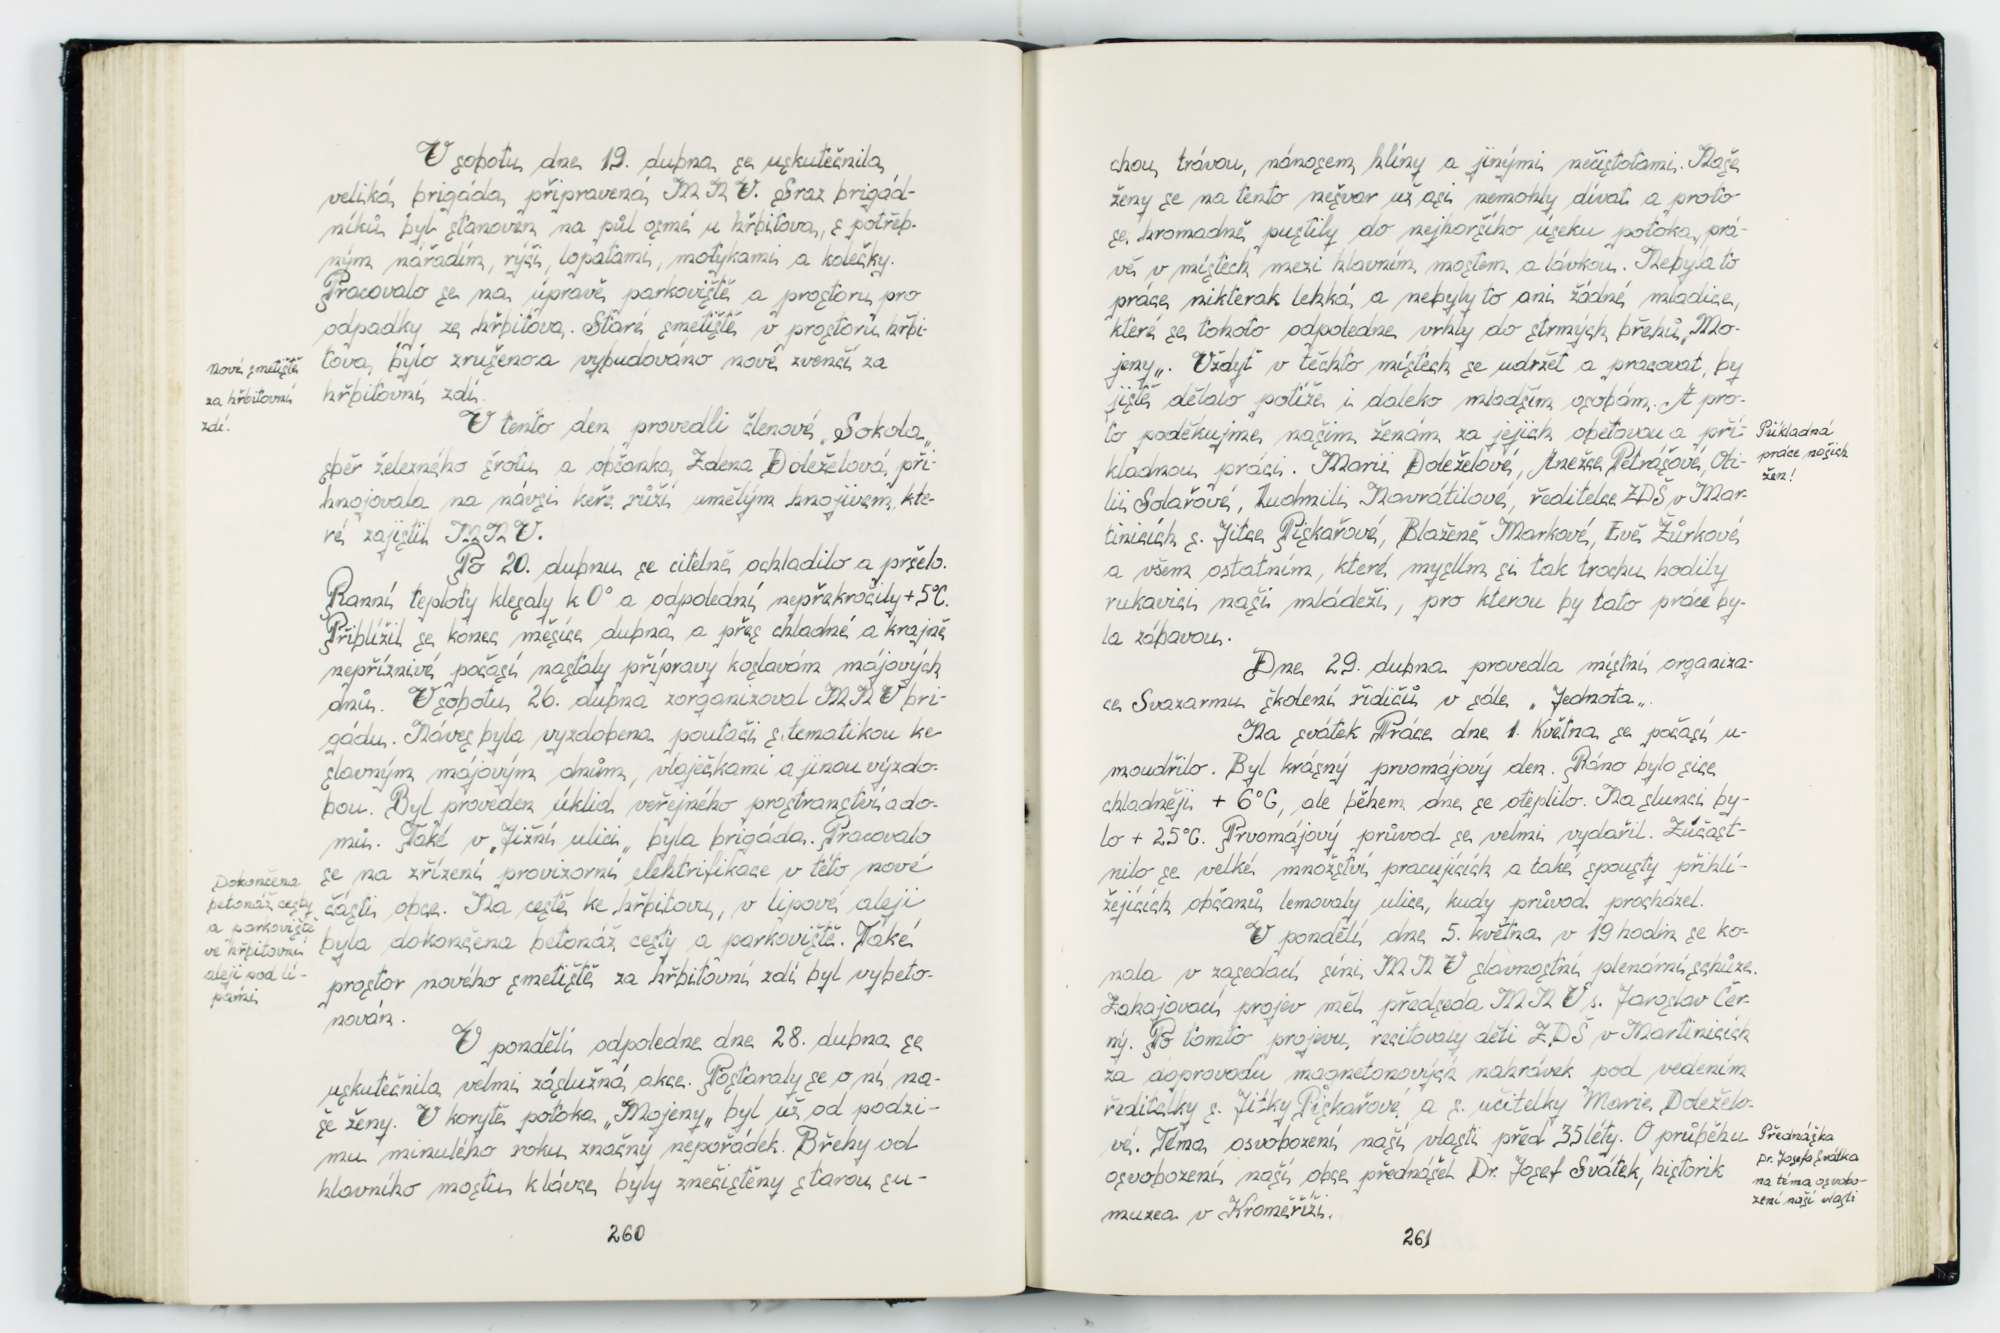 V sobotu dne 19. dubna se uskutečnila
veliká brigáda připravená MNV. Sraz brigád-
níků byl stanoven na půl osmé u hřbitova, s potřeb-
ným nářadím, rýči, lopatami, motykami a kolečky.
Pracovalo se na úpravě parkoviště a prostoru pro
odpadky ze hřbitova. Staré smetiště v prostoru hřbi-
tova bylo zrušeno a vybudováno nové zvenčí za
hřbitovní zdí.
Nové smetiště
za hřbitovní
zdí!
V tento den provedli členové „Sokola„
sběr železného šrotu a občanka Zdena Doleželová při-
hnojovala na návsi keře růží umělým hnojivem, kte-
ré zajistil MNV.
Po 20. dubnu se citelně ochladilo a pršelo.
Ranní teploty klesaly k 0° a odpolední nepřekročily +5°C.
Přiblížil se konec měsíce dubna a přes chladné a krajně
nepříznivé počasí nastaly přípravy k oslavám májových
dnů. V sobotu 26. dubna zorganizoval MNV bri-
gádu. Náves byla vyzdobena poutači s tematikou ke
slavným májovým dnům, vlaječkami a jinou výzdo-
bou. Byl proveden úklid veřejného prostranství a do-
mů. Také v „Jižní ulici„ byla brigáda. Pracovalo
se na zřízení provizorní elektrifikace v této nové
části obce. Na cestě ke hřbitovu, v lipové aleji
byla dokončena betonáž cesty a parkoviště. Také
prostor nového smetiště za hřbitovní zdí byl vybeto-
nován.
Dokončena
betonáž cesty
a parkoviště
ve hřbitovní
aleji pod lí-
pami
V pondělí odpoledne dne 28. dubna se
uskutečnila velmi záslužná akce. Postaraly se o ní na-
še ženy. V korytě potoka „Mojeny„ byl už od podzi-
mu minulého roku značný nepořádek. Břehy od
hlavního mostu k lávce byly znečištěny starou su-
260
chou trávou, nánosem hlíny a jinými nečistotami. Naše
ženy se na tento nešvar už asi nemohly dívat a proto
se hromadně pustily do nejhoršího úseku potoka, prá-
vě v místech mezi hlavním mostem a lávkou. Nebyla to
práce nikterak lehká a nebyly to ani žádné mladice,
které se tohoto odpoledne vrhly do strmých břehů „Mo-
jeny„. Vždyť v těchto místech se udržet a pracovat, by
jistě dělalo potíže i daleko mladším osobám. A pro-
to poděkujme našim ženám za jejich obětavou a pří-
kladnou práci. Marii Doleželové, Anežce Petrášové, Oti-
lii Solařové, Ludmili Navrátilové, ředitelce ZDŠ v Mar-
tinicích s. Jitce Piskařové, Blaženě Markové, Evě Žůrkové
a všem ostatním, které myslím si tak trochu hodily
rukavici naší mládeži, pro kterou by tato práce by-
la zábavou.
Příkladná
práce našich
žen!
Dne 29. dubna provedla místní organiza-
ce Svazarmu školení řidičů v sále „Jednota„.
Na svátek Práce dne 1. května se počasí u-
moudřilo. Byl krásný prvomájový den. Ráno bylo sice
chladněji + 6°C, ale během dne se oteplilo. Na slunci by-
lo + 25°C. Prvomájový průvod se velmi vydařil. Zúčast-
nilo se velké množství pracujících a také spousty přihlí-
žejících občanů lemovaly ulice, kudy průvod procházel.
V pondělí dne 5. května v 19 hodin se ko-
nala v zasedací síni MNV slavnostní plenární schůze.
Zahajovací projev měl předseda MNV s. Jaroslav Čer-
ný. Po tomto projevu recitovaly děti ZDŠ v Martinicích
za doprovodu magnetonových nahrávek pod vedením
ředitelky s. Jitky Piskařové a s. učitelky Marie Doležělo-
vé. Téma osvobození naší vlasti před 35 léty. O průběhu
osvobození naší obce přednášel Dr. Josef Svátek, historik
muzea v Kroměříži.
Přednáška
Dr. Josefa Svátka
na téma osvobo-
zení naší vlasti
261